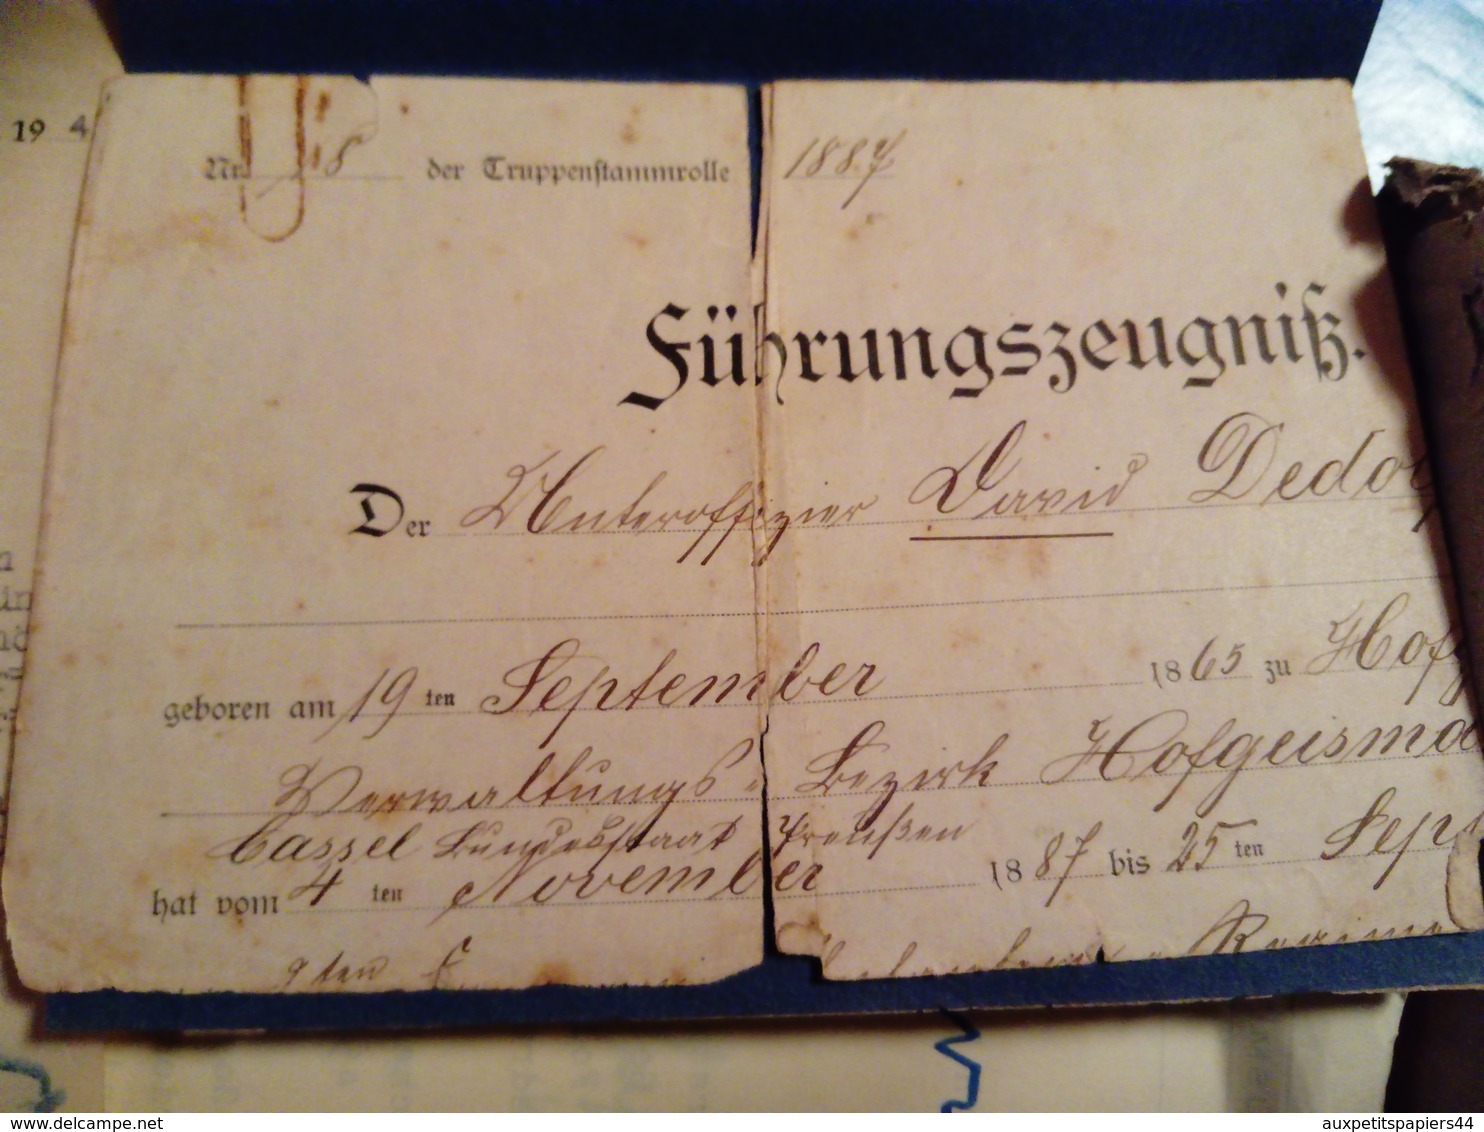 19 4
Nr. 18 der Truppenstammrolle 1887
Führungszeugniß.
Der Unteroffizier David Dedo
geboren am 19ten September 1865 zu Hofg
Verwaltungs-Bezirk Hofgeisma
Cassel Bundesstaat Preußen
hat vom 4ten November 1887 bis 25ten Sept
9ten
Regime
auxpetitspapiers44
www.delcampe.net